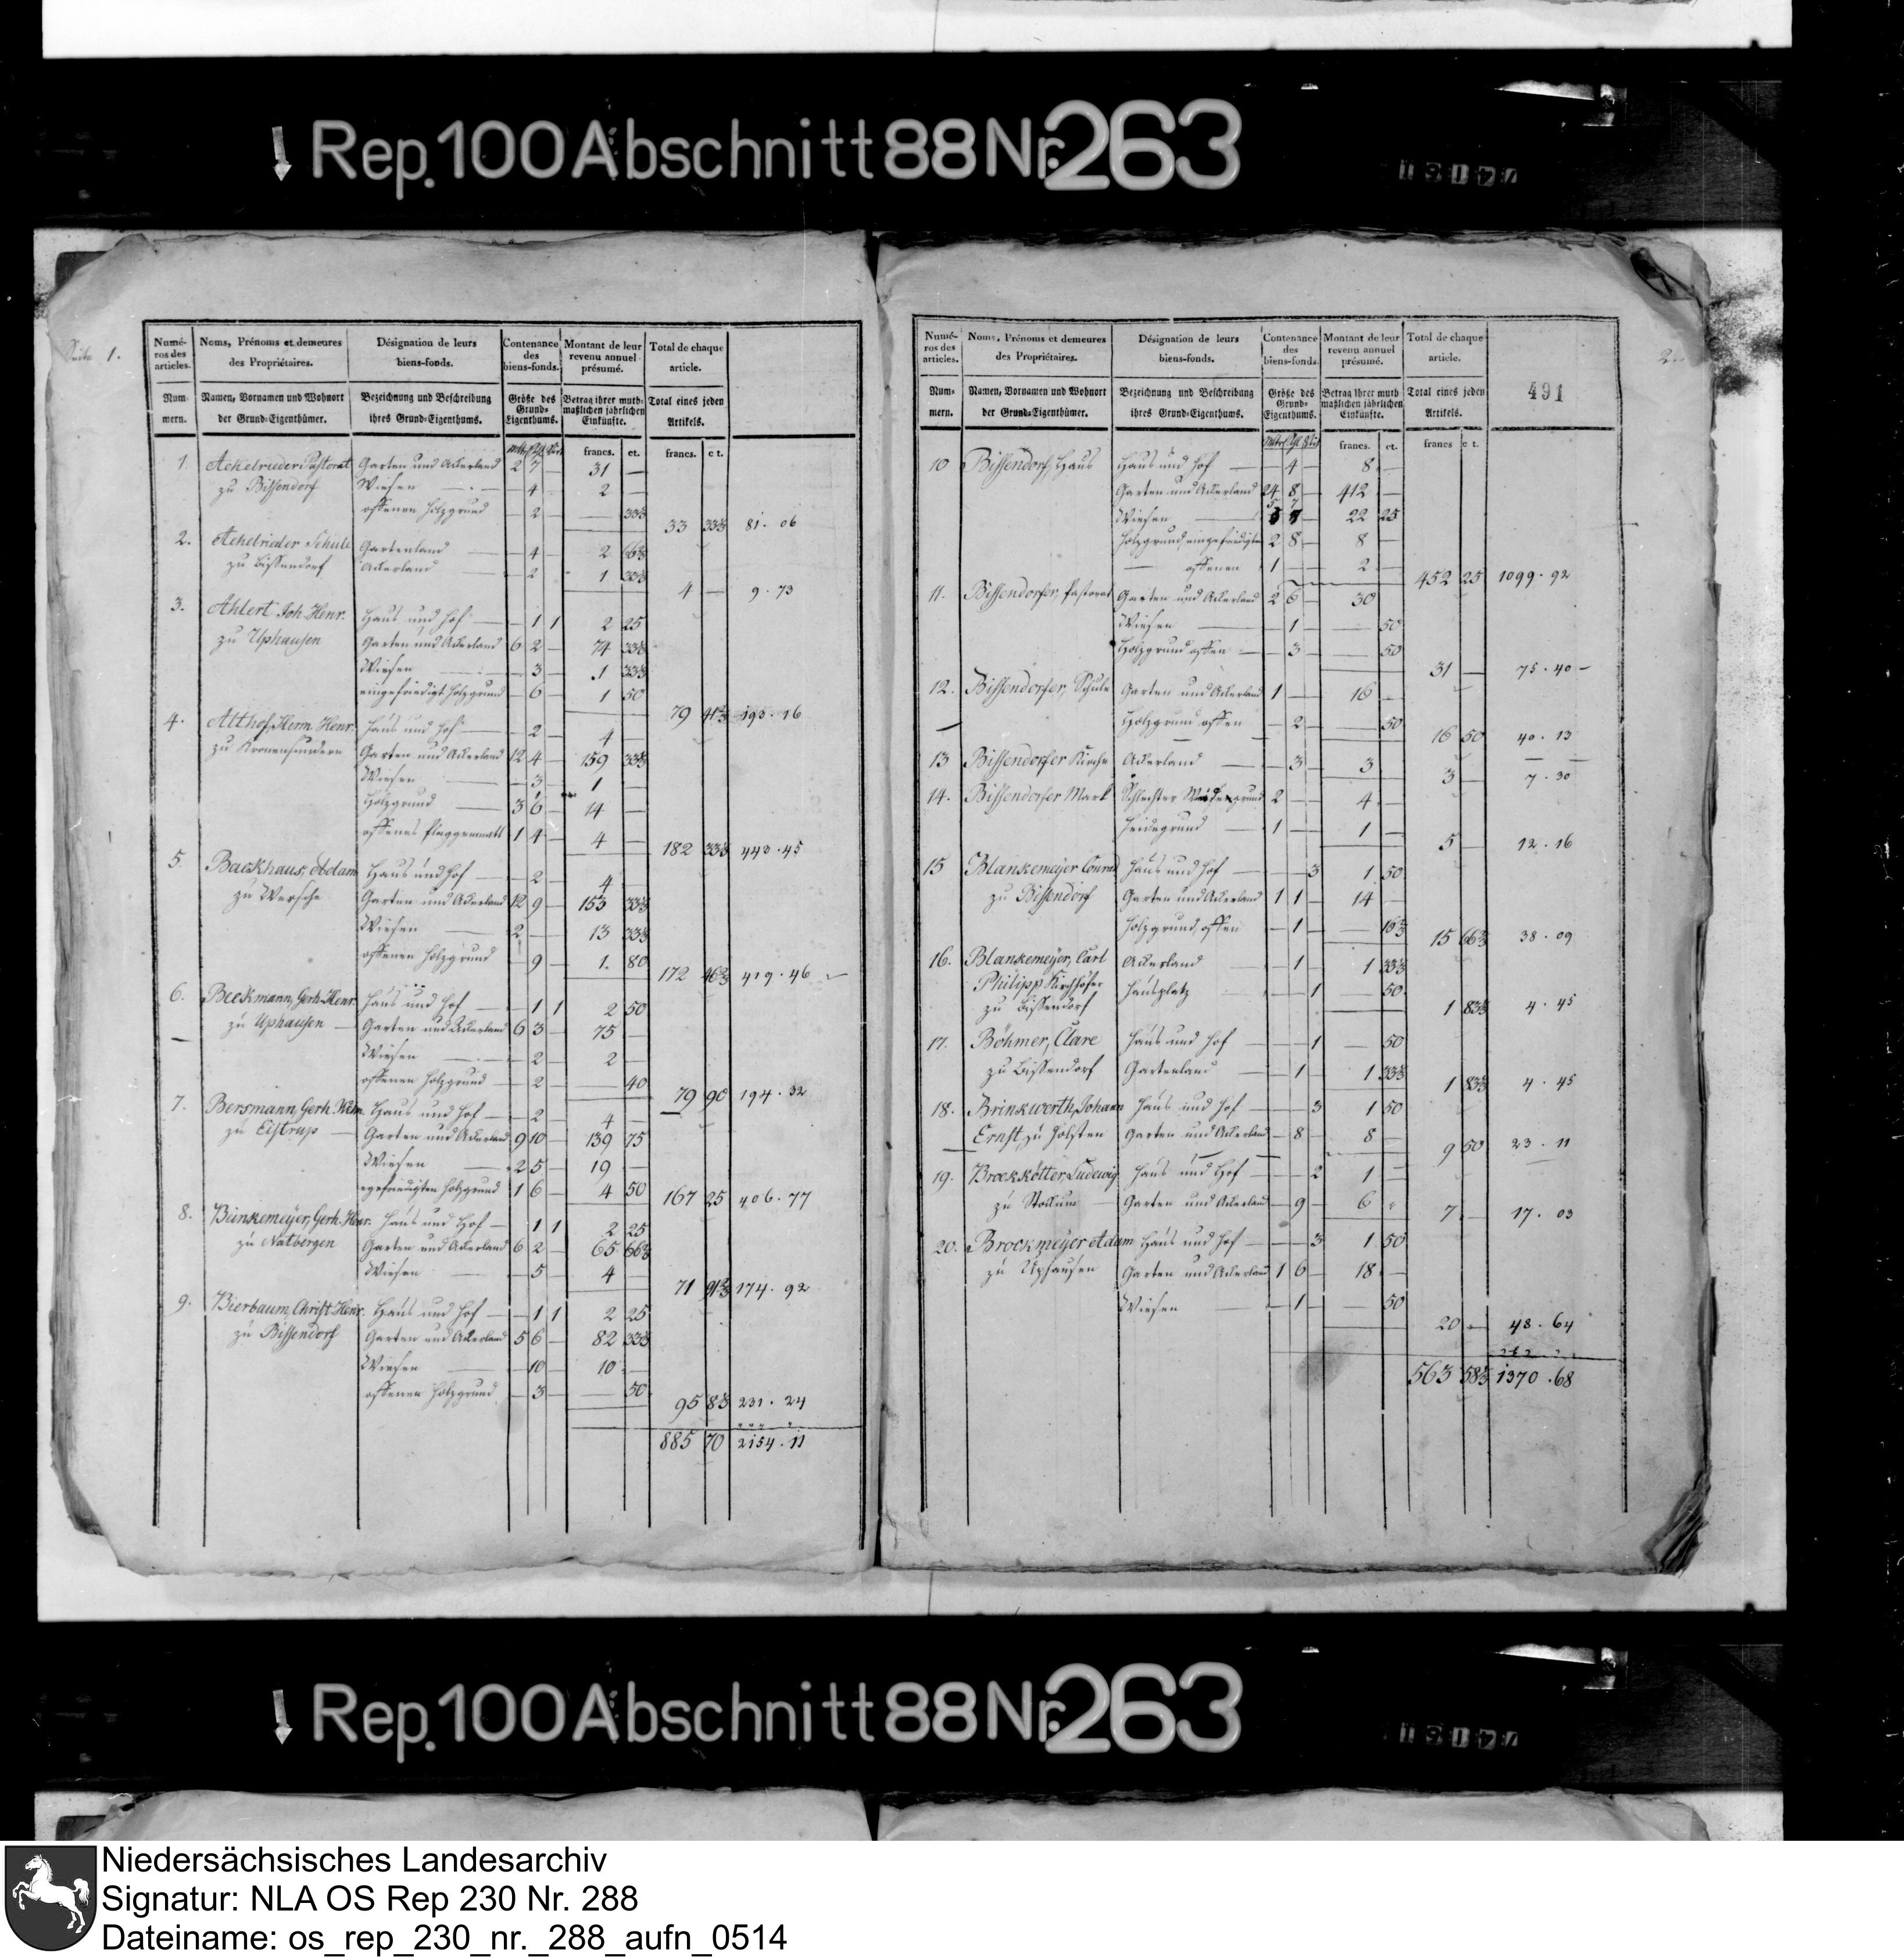 Rep. 100 Abschnitt 88 Nr. 263
Seite 1.
Numéros des articles. Noms, Prénoms et demeures des Propriétaires. Désignation de leurs biens-fonds. Contenance des biens-fonds. Montant de leur revenu annuel présumé. Total de chaque article.
Nummern. Namen, Vornamen und Wohnort der Grund-Eigenthümer. Bezeichnung und Beschreibung ihres Grund-Eigenthums. Größe des Grund-Eigenthums. Betrag ihrer muthmaßlichen jährlichen Einkünfte. Total eines jeden Artikels.
francs. ct. francs. ct.
1. Ackelrieder Pastorat Garten und Ackerland 2 7 — 31 —
zu Bissendorf Wiesen — 4 — 2 —
offenen Holzgrund — 2 — — 33⅓
33 33⅓ 81. 06
2. Achelrieder Schule Gartenland — 4 — 2 66⅔
zu Bissendorf Ackerland — 2 — 1 33⅓
4 — 9. 73
3. Ahlert Joh. Henr. Haus und Hof — 1 1 2 25
zu Uphausen Garten und Ackerland 6 2 — 74 33⅓
Wiesen — 3 — 1 33⅓
eingefriedigt Holzgrund — 6 — 1 50
79 41⅔ 193. 16
4. Althof, Herm. Henr. Haus und Hof — 2 — 4 —
zu Kronensundern Garten und Ackerland 12 4 — 159 33⅓
Wiesen — 3 — 1 —
Holzgrund 3 6 — 14 —
offenes Plaggenmatt 1 4 — 4 —
182 33⅓ 443. 45
5. Backhaus, Adam Haus und Hof — 2 — 4 —
zu Wersche Garten und Ackerland 12 9 — 153 33⅓
Wiesen 2 — — 13 33⅓
offenen Holzgrund — 9 — 1. 80
172 46⅔ 419. 46
6. Beckmann, Gerh. Henr. Haus und Hof — 1 1 2 50
zu Uphausen Garten und Ackerland 6 3 — 75 —
Wiesen — 2 — 2 —
offenen Holzgrund — 2 — — 40
79 90 194. 32
7. Bersmann, Gerh. Haus und Hof — 2 — 4 —
zu Eistrup Garten und Ackerland 9 10 — 139 75
Wiesen 2 5 — 19 —
Holzgrund 1 6 — 4 50
167 25 406. 77
8. Gerh. Henr. Haus und Hof — 1 1 2 25
zu Natbergen Garten und Ackerland 6 2 — 65 66⅔
Wiesen — 5 — 4 —
71 91⅔ 174. 92
9. Bierbaum, Christ. Henr. Haus und Hof — 1 1 2 25
zu Bissendorf Garten und Ackerland 5 6 — 82 33⅓
Wiesen — 10 — 10 —
offenen Holzgrund — 3 — — 50
95 8⅓ 231. 24
885 70 2154. 11
2.
Numéros des articles. Noms, Prénoms et demeures des Propriétaires. Désignation de leurs biens-fonds. Contenance des biens-fonds. Montant de leur revenu annuel présumé. Total de chaque article.
Nummern. Namen, Vornamen und Wohnort der Grund-Eigenthümer. Bezeichnung und Beschreibung ihres Grund-Eigenthums. Größe des Grund-Eigenthums. Betrag ihrer muthmaßlichen jährlichen Einkünfte. Total eines jeden Artikels. 491
francs. ct. francs ct.
10 Bissendorf, Haus Haus und Hof — 4 — 8 —
Garten und Ackerland 24 8 — 412 —
Wiesen 5 7 — 22 25
Holzgrund, eingefriedigten 2 8 — 8 —
— offenen 1 — — 2 —
452 25 1099. 92
11. Bissendorfer, Pastorat Garten und Ackerland 2 6 — 30
Wiesen — 1 — — 50
Holzgrund offen — 3 — — 50
31 — 75. 40 —
12. Bissendorfer, Schule Garten und Ackerland 1 — — 16 —
Holzgrund offen — 2 — — 50
16 50 40. 13
13 Bissendorfer Kirche Ackerland — 3 — 3
3 — 7. 30
14. Bissendorfer Mark Schlechter 2 — — 4 —
Heidegrund 1 — — 1 —
5 — 12. 16
15 Blankemeyer Conrad Haus und Hof — — 3 1 50
zu Bissendorf Garten und Ackerland 1 1 — 14 —
Holzgrund, offen — 1 — — 16⅔
15 66⅔ 38. 09
16. Blankemeyer, Carl Ackerland — 1 — 1 33⅓
Philipp Kirchhöfer Hausplatz — — 1 — 50
zu Bissendorf
1 83⅓ 4. 45
17. Böhmer, Clare Haus und Hof — — 1 — 50
zu Bissendorf Gartenland — 1 — 1 33⅓
1 83⅓ 4. 45
18. Brinkwerth, Johann Haus und Hof — — 3 1 50
Ernst, zu Holsten Garten und Ackerland — 8 — 8 —
9 50 23. 11
19. Brockkötter, Ludewig Haus und Hof — — 2 1 —
zu Stockum Garten und Ackerland — 9 — 6
7 — 17. 03
20. Brockmeyer Adam Haus und Hof — — 3 1 50
zu Uphausen Garten und Ackerland 1 6 — 18 —
Wiesen — 1 — — 50
20 — 48. 64
563 58⅓ 1370. 68
Rep. 100 Abschnitt 88 Nr. 263
Niedersächsisches Landesarchiv
Signatur: NLA OS Rep 230 Nr. 288
Dateiname: os_rep_230_nr._288_aufn_0514